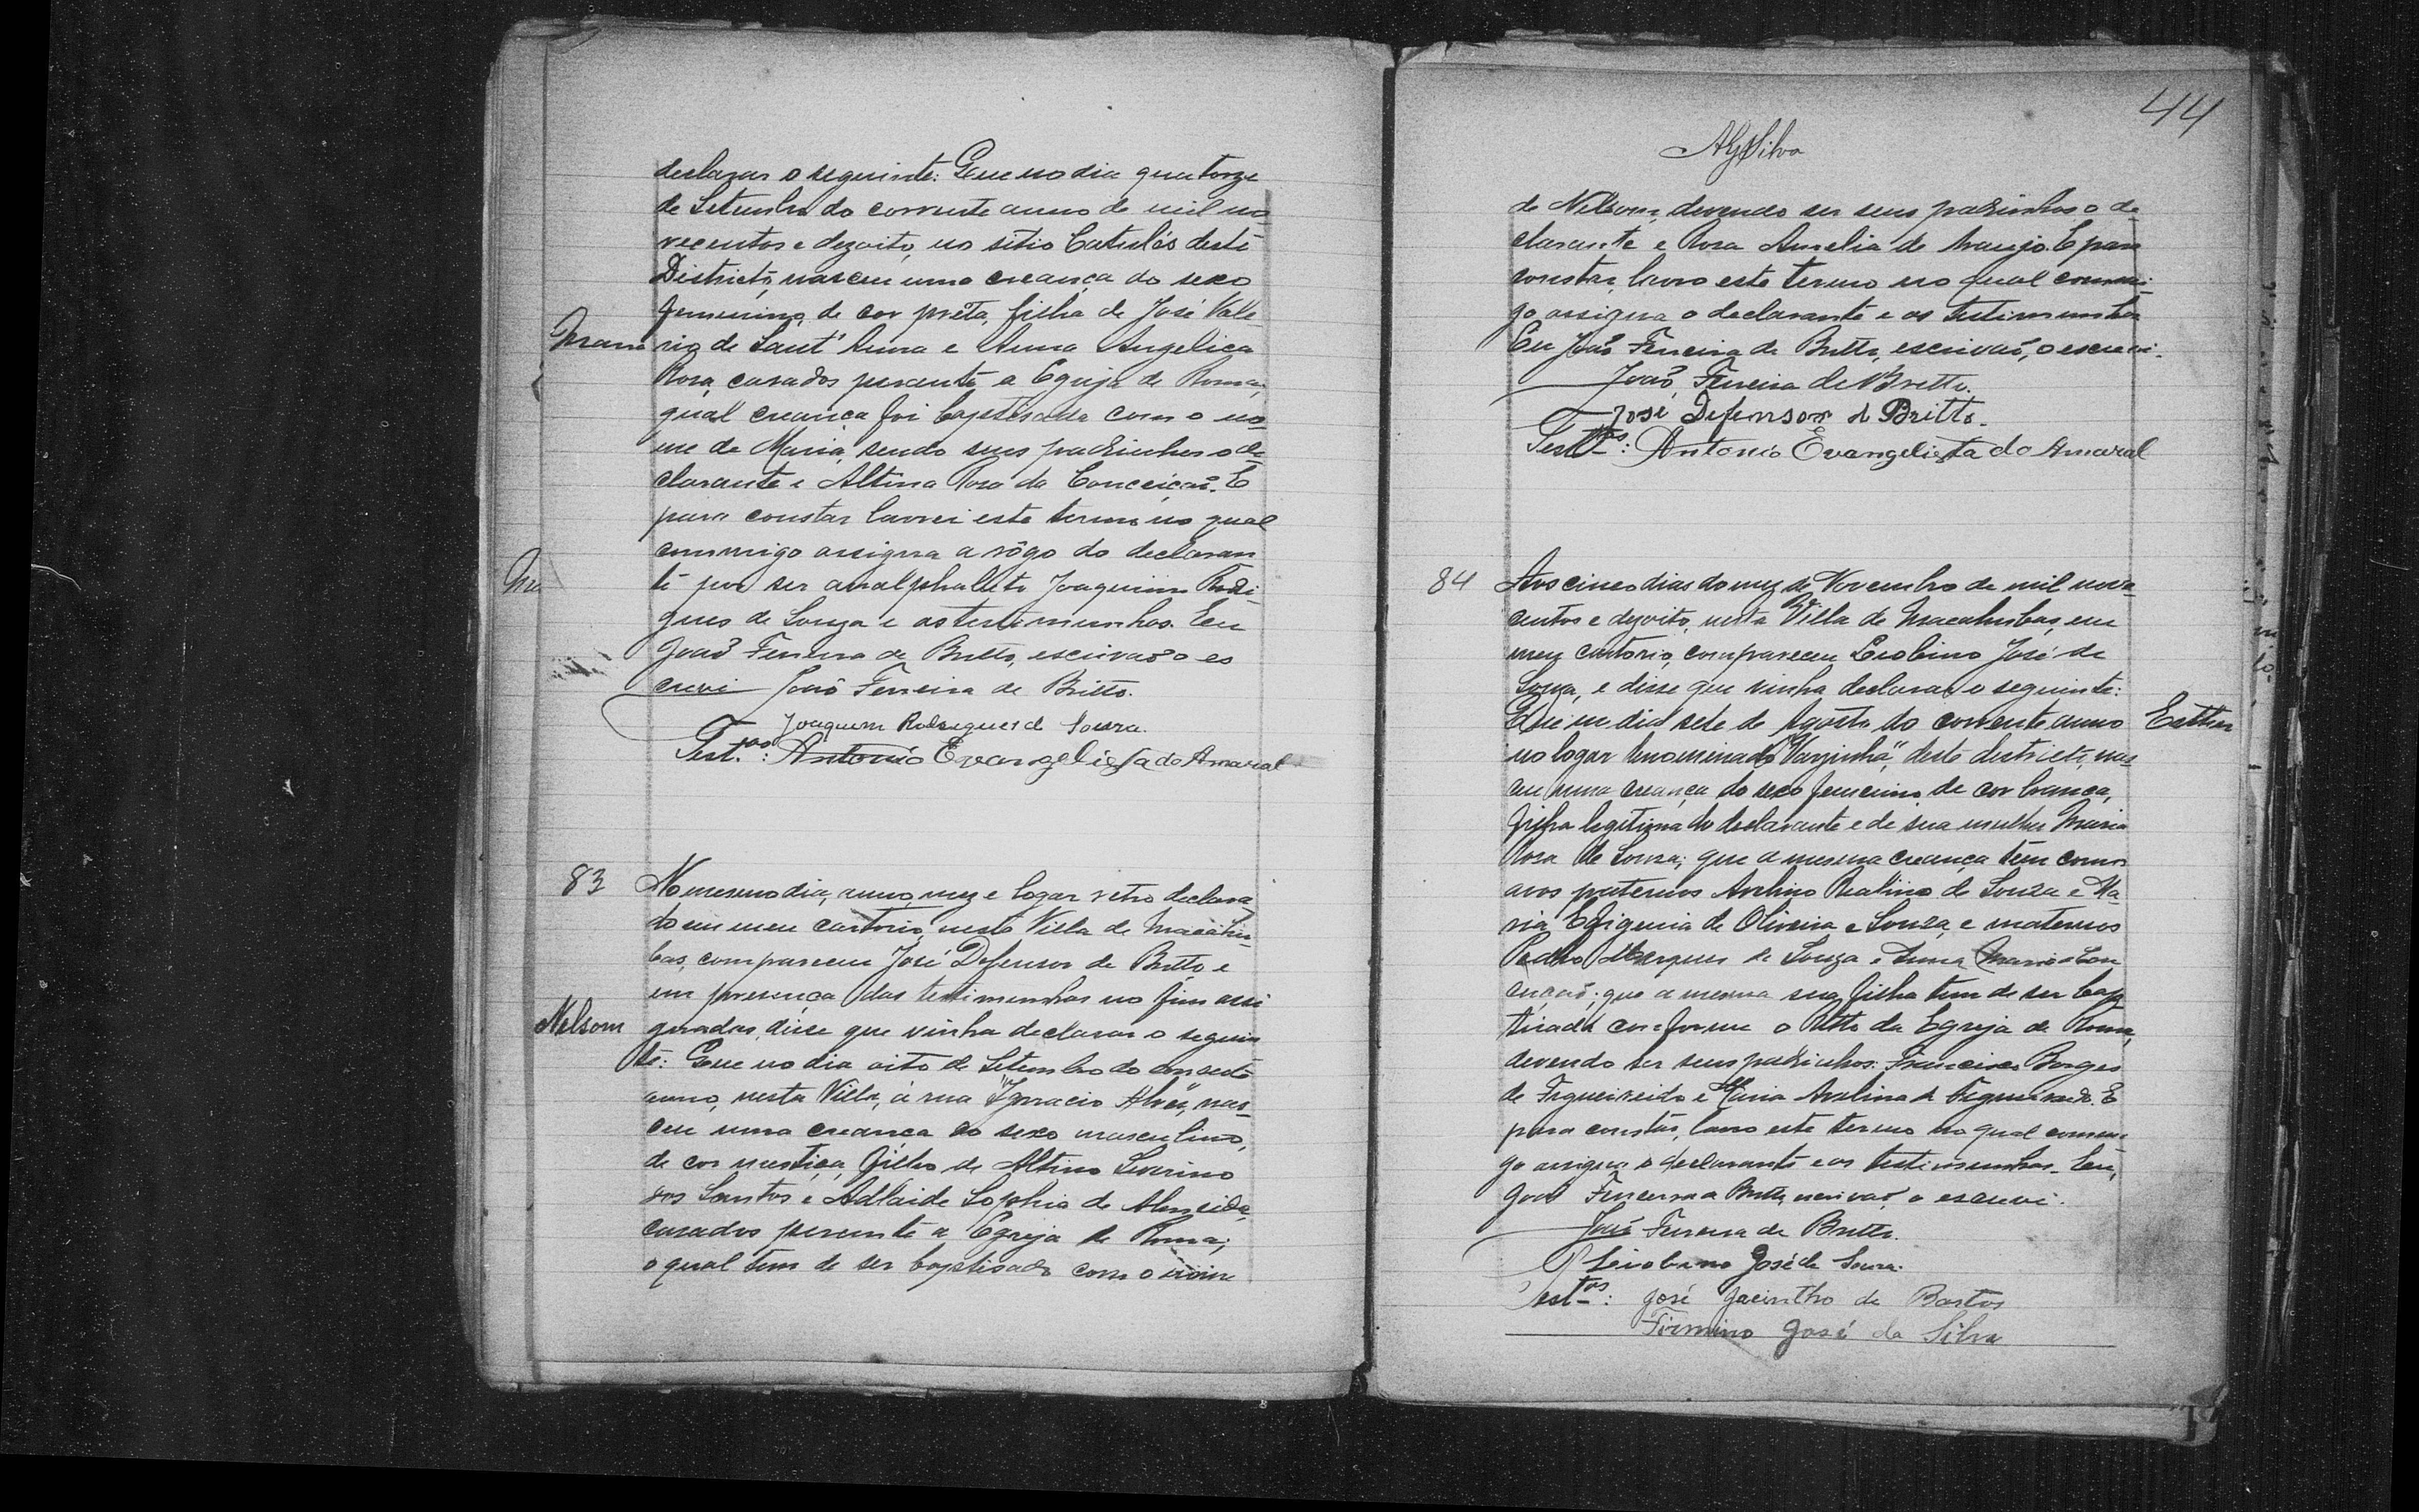 declarar o seguinte: Que no dia quatorze
de Setembro do corrente anno de mil no-
vecentos e dezoito, no sitio Catulés deste
Districto, nasceu uma creança do sexo
femenino, de cor prêta, filha de José Vale-
Maria
rio de Sant'Anna e Anna Angelica
Rosa, casados perante a Egreja de Roma,
qual creança foi baptisada com o no-
me de Maria, sendo seus padrinhos o de-
clarante e Altina Rosa da Conceição. E
para constar lavrei este termo no qual
commigo assigna a rôgo do declaran
te por ser analphabeto Joaquim Rodri-
gues de Souza e as testemunhas. Eu
João Ferreira de Britto, escrivão o es
crevi João Ferreira de Britto.
Joaquim Rodrigues de Souza.
Test.as: Antonio Evangelista do Amaral
83
No mesmo dia, anno, mez e logar retro declara-
do em meu cartorio, nesta Villa de Macahu-
bas, compareceu José Defensor de Britto e
em presença das testimunhas no fim assi
Nelsom
gnadas, disse que vinha declarar o seguin
te: Que no dia oito de Setembro do corrente
anno, nesta Villa, á rua "Ignacio Alves", nas-
ceu uma creança do sexo masculino,
de cor mestiça, filho de Altino Severino
dos Santos e Adlaide Sophia de Almeida,
casados perante a Egreja de Roma;
o qual tem de ser baptisado com o nome
44
AGSilva
de Nelsom, devendo ser seus padrinhos o de-
clarante e Rosa Amelia de Araujo. E para
constar, lavro este termo no qual commi-
go assigna o declarante e as testimunhas
Eu João Ferreira de Britto, escrivão, o escrevi.
João Ferreira de Britto.
José Defensor de Britto.
Test.as: Antonio Evangelista do Amaral
84
Aos cinco dias do mez de Novembro de mil nove-
centos e dezoito, nesta Villa de Macahubas, em
meu cartorio, compareceu Leobino José de
Souza, e disse que vinha declarar o seguinte:
Que em dia sete de Agosto do corrente anno
Esther
no logar denominado "Varginha", deste districto, nas-
ceu uma creança do sexo femenino, de cor branca,
filha legitima do declarante e de sua mulher Maria
Rosa de Souza; que a mesma creança têm como
avos paternos Avelino Realino de Souza e Ma-
ria Efigenia de Oliveira e Souza, e maternos
Pedro Marques de Souza e Anna Maria da Con
ceição; que a mesma sua filha tem de ser bap
tisada conforme o Ritto da Egreja de Roma,
devendo ser seus padrinhos: Francisco Borges
de Figueireido e Maria Avelina de Figueiredo. E
para constar, lavro este termo no qual commi
go assigna o declarante e as testimunhas. Eu,
João Ferreira de Britto, escrivão, o escrevi.
João Ferreira de Britto.
Leiobino José de Souza.
Test.as: José Jacintho de Bastos
Firmino José da Silva